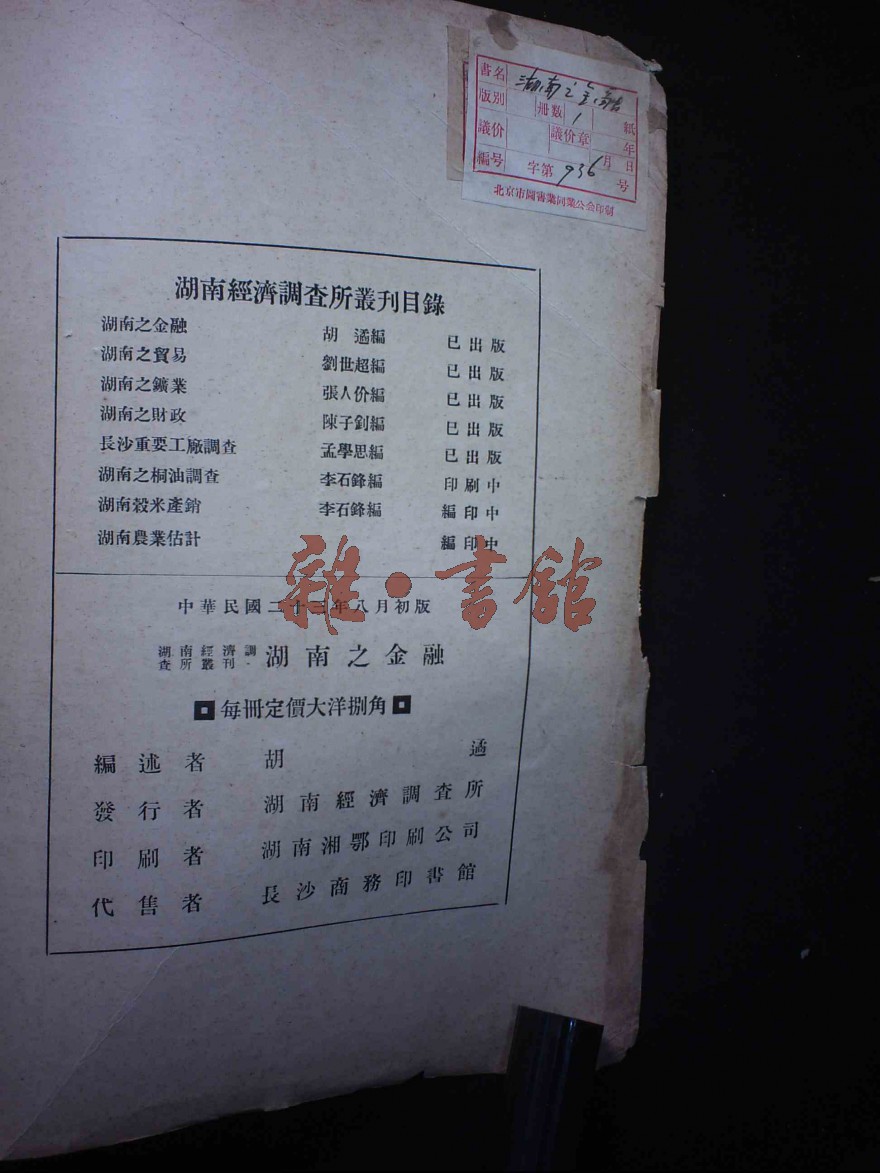 書名 湖南之金融
版別 冊數 1 紙
議价 議价章 年
編号 字第 936 号 月 日
北京市圖書業同業公会印制
湖南經濟調查所叢刊目錄
湖南之金融 胡遹編 已出版
湖南之貿易 劉世超編 已出版
湖南之鑛業 張人价編 已出版
湖南之財政 陳子釗編 已出版
長沙重要工廠調查 孟學思編 已出版
湖南之桐油調查 李石鋒編 印刷中
湖南穀米產銷 李石鋒編 編印中
湖南農業估計 編印中
雜·書館
中華民國二十三年八月初版
湖南經濟調查所叢刊 湖南之金融
每冊定價大洋捌角
編述者 胡遹
發行者 湖南經濟調查所
印刷者 湖南湘鄂印刷公司
代售者 長沙商務印書館